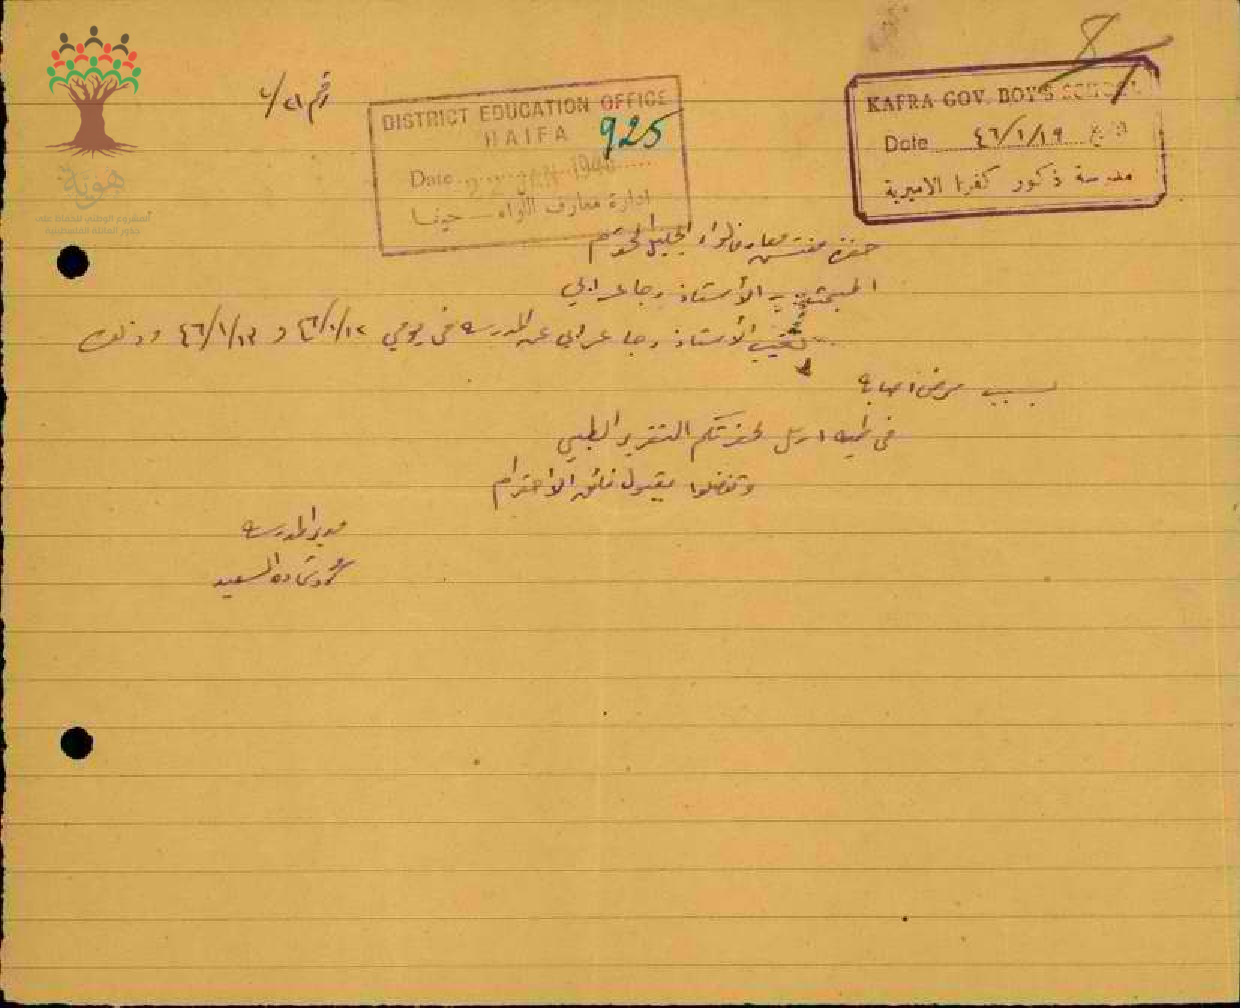 8
رقم ٢١/٤
DISTRICT EDUCATION OFFICE
HAIFA
925
Date 22 JAN 1946
ادارة معارف اللواء حيفا
KAFRA GOV. BOY'S SCHOOL
Date ٤٦/١/١٩
مدرسة ذكور كفرا الاميرية
هوية
المشروع الوطني للحفاظ على
جذور العائلة الفلسطينية
حضرة مفتش معارف لواء الجليل المحترم
الأستاذ رجا عرابي
تغيب الأستاذ رجا عرابي عن المدرسة في يومي ٤٦/١/١٢ و ٤٦/١/١٣ وذلك
بسبب مرض اصابه
في طيه ارسل لحضرتكم التقرير الطبي
وتفضلوا بقبول فائق الاحترام
مدير المدرسة
السعيد